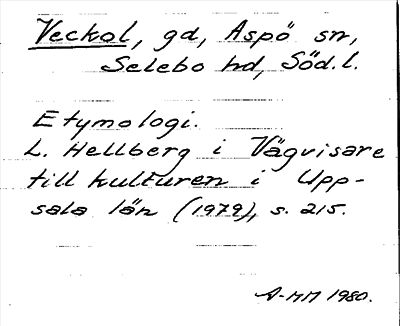 Veckol, gd, Aspö sn,
Selebo hd, Söd.l.
Etymologi.
L. Hellberg i Vägvisare
till kulturen i Upp-
sala län (1979), s. 215.
A-MM 1980.